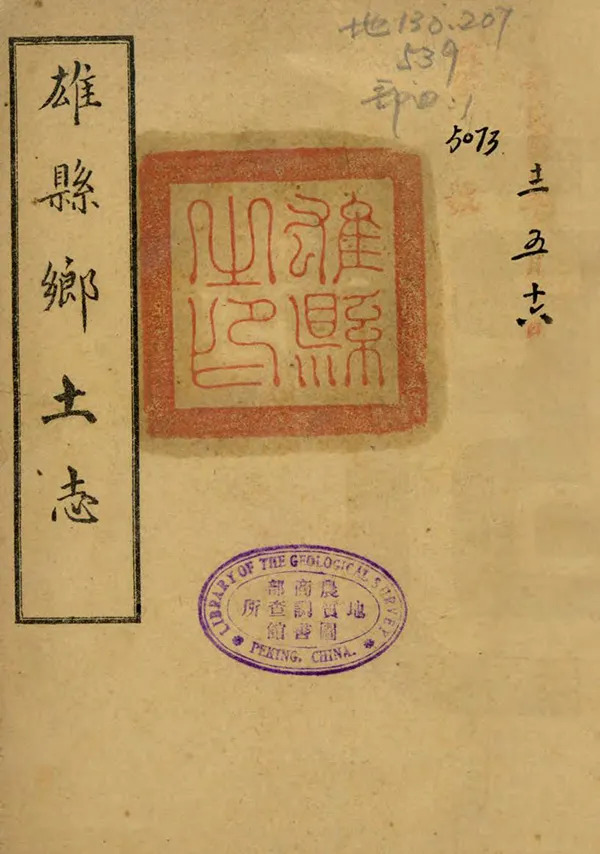 地130.207
539
5073
五
十六
雄縣
之印
雄縣鄉土志
LIBRARY OF THE GEOLOGICAL SURVEY
農商部
地質調查所
圖書館
PEKING, CHINA.